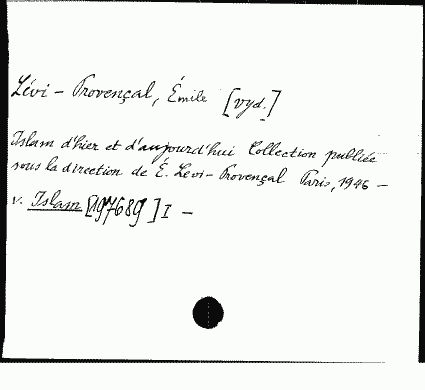 Lévi - Provençal, Émile [vyd.]
Islam d'hier et d'aujourd'hui Collection publiée
sous la direction de É. Levi - Provençal Paris, 1946 -
v. Islam [197689] I -